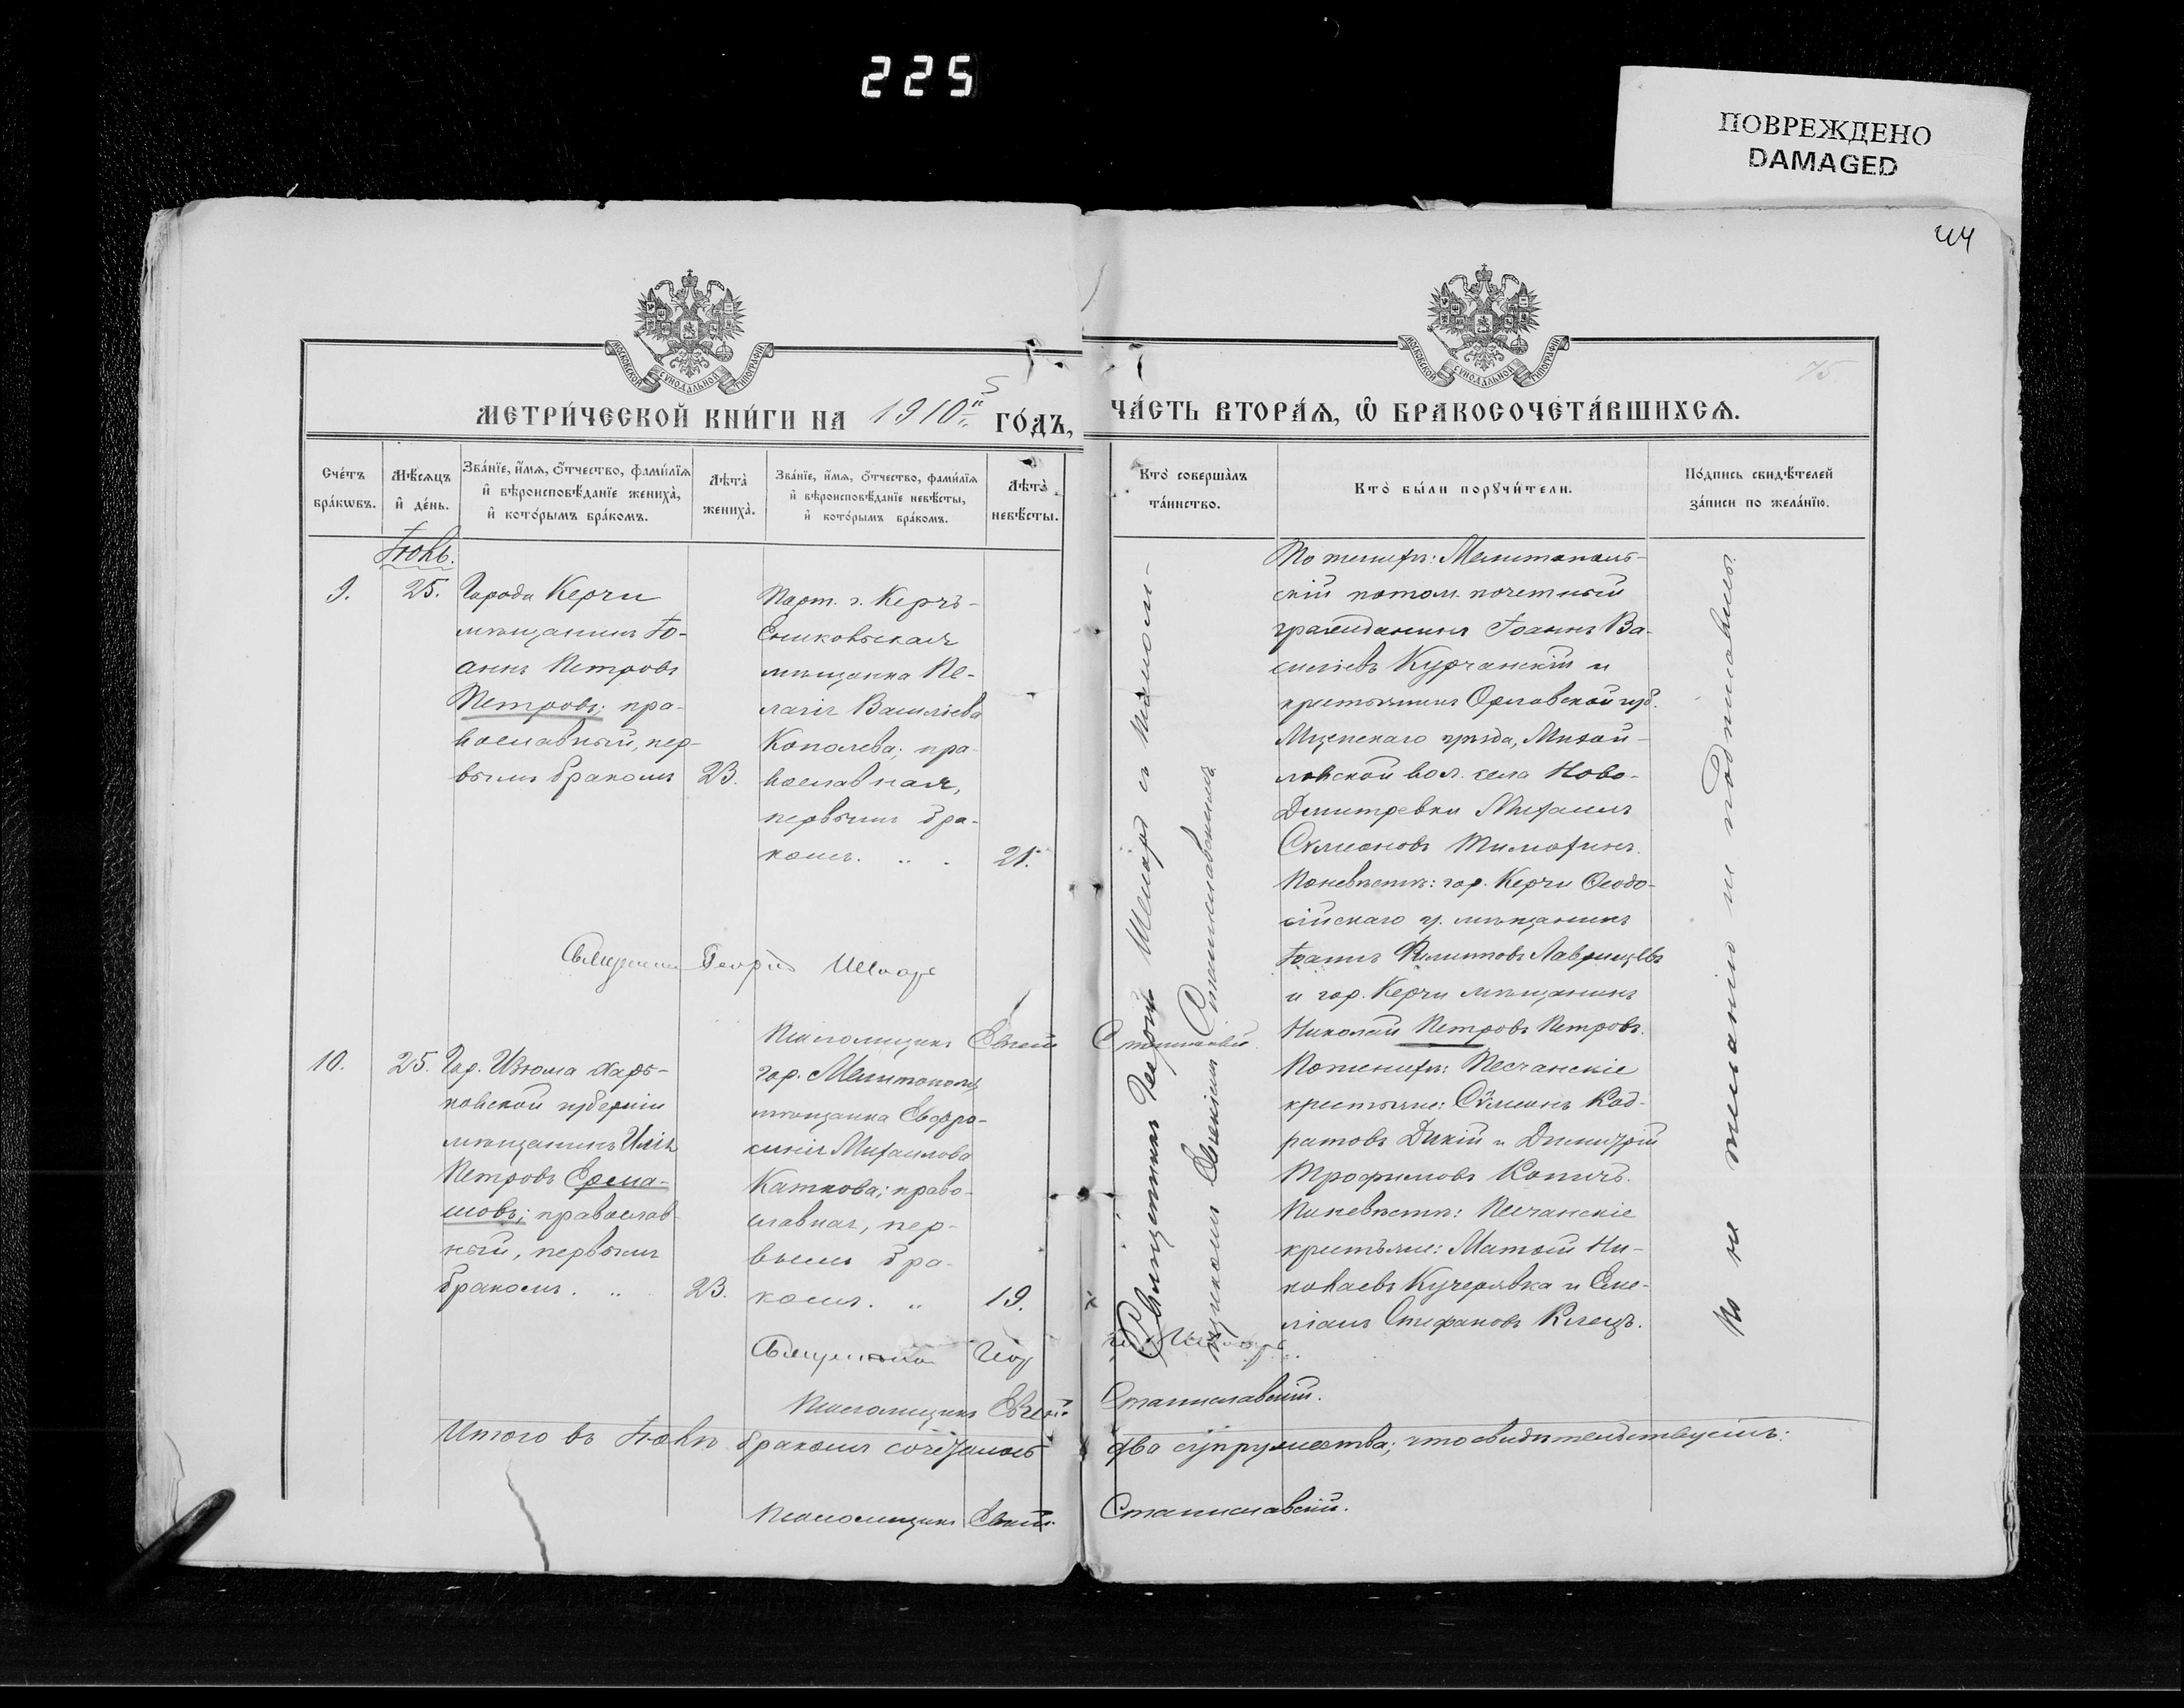 225
ПОВРЕЖДЕНО
DAMAGED
44
75.
МЕТРИ́ЧЕСКОЙ КНИ́ГИ НА 1910 ГО́ДЪ,
ЧА́СТЬ ВТОРА́Ѧ, Ѿ БРАКОСОЧЕТА́ВШИХСѦ.
Сче́тъ бра́кѡвъ.
Мѣ́сяцъ и҆ де́нь.
Зва́нїе, и҆́мѧ, ѻ҆́тчество, фами́лїѧ
и҆ вѣроисповѣ́данїе жениха̀,
и҆ кото́рымъ бра́комъ.
Лѣта̀ жениха̀.
Зва́нїе, и҆́мѧ, ѻ҆́тчество, фами́лїѧ
и҆ вѣроисповѣ́данїе невѣ́сты,
и҆ кото́рымъ бра́комъ.
Лѣта̀ невѣ́сты.
Кто̀ соверша̀лъ
та́инство.
Кто̀ бы́ли порꙋчи́тели.
По́дпись свидѣ́телей
за́писи по жела́нїю.
Іюнь.
9.
25.
Города Керчи
мѣщанинъ Іо-
аннъ Петровъ
Петровъ; пра-
вославный, пер-
вымъ бракомъ
23.
Порт. г. Керчъ-
Ениковская
мѣщанка Пе-
лагія Васильева
Копалева; пра-
вославная,
первымъ бра-
комъ.
21.
По женихѣ: Мелитополь-
скій потом. почетный
гражданинъ Іоаннъ Ва-
сильевъ Курчанскій и
крестьянинъ Орловской губ.
Мценскаго уѣзда, Михай-
ловской вол. села Ново-
Димитревки Михаилъ
Сѵмеоновъ Тимохинъ.
По невѣстѣ: гор. Керчи Ѳеодо-
сійскаго у. мѣщанинъ
Іоаннъ Филипповъ Лавринцевъ
и гор. Керчи мѣщанинъ
Николай Петровъ Петровъ.
Священникъ Георгій
Псаломщикъ Евгеній Станиславскій.
10.
25.
Гор. Изюма Харь-
ковской губерніи
мѣщанинъ Илія
Петровъ Ерма-
шовъ; православ-
ный, первымъ
бракомъ.
23.
гор. Мелитополя
мѣщанка Евфро-
синія Михаилова
Каткова; право-
славная, пер-
вымъ бра-
комъ.
19.
По женихѣ: Песчанскіе
крестьяне: Сѵмеонъ Код-
ратовъ Дикій и Димитрій
Трофимовъ Копичъ.
По невѣстѣ: Песчанскіе
крестьяне: Матѳей Ни-
колаевъ Кучерявка и Еме-
ліанъ Стефановъ Клецъ.
Священникъ Георгій съ псалом-
щикомъ Евгеніемъ Станиславскимъ
Священникъ
Псаломщикъ Евгеній Станиславскій.
Итого въ Іюнѣ бракомъ сочеталось два супружества; что свидѣтельствуемъ:
Псаломщикъ Евгеній Станиславскій.